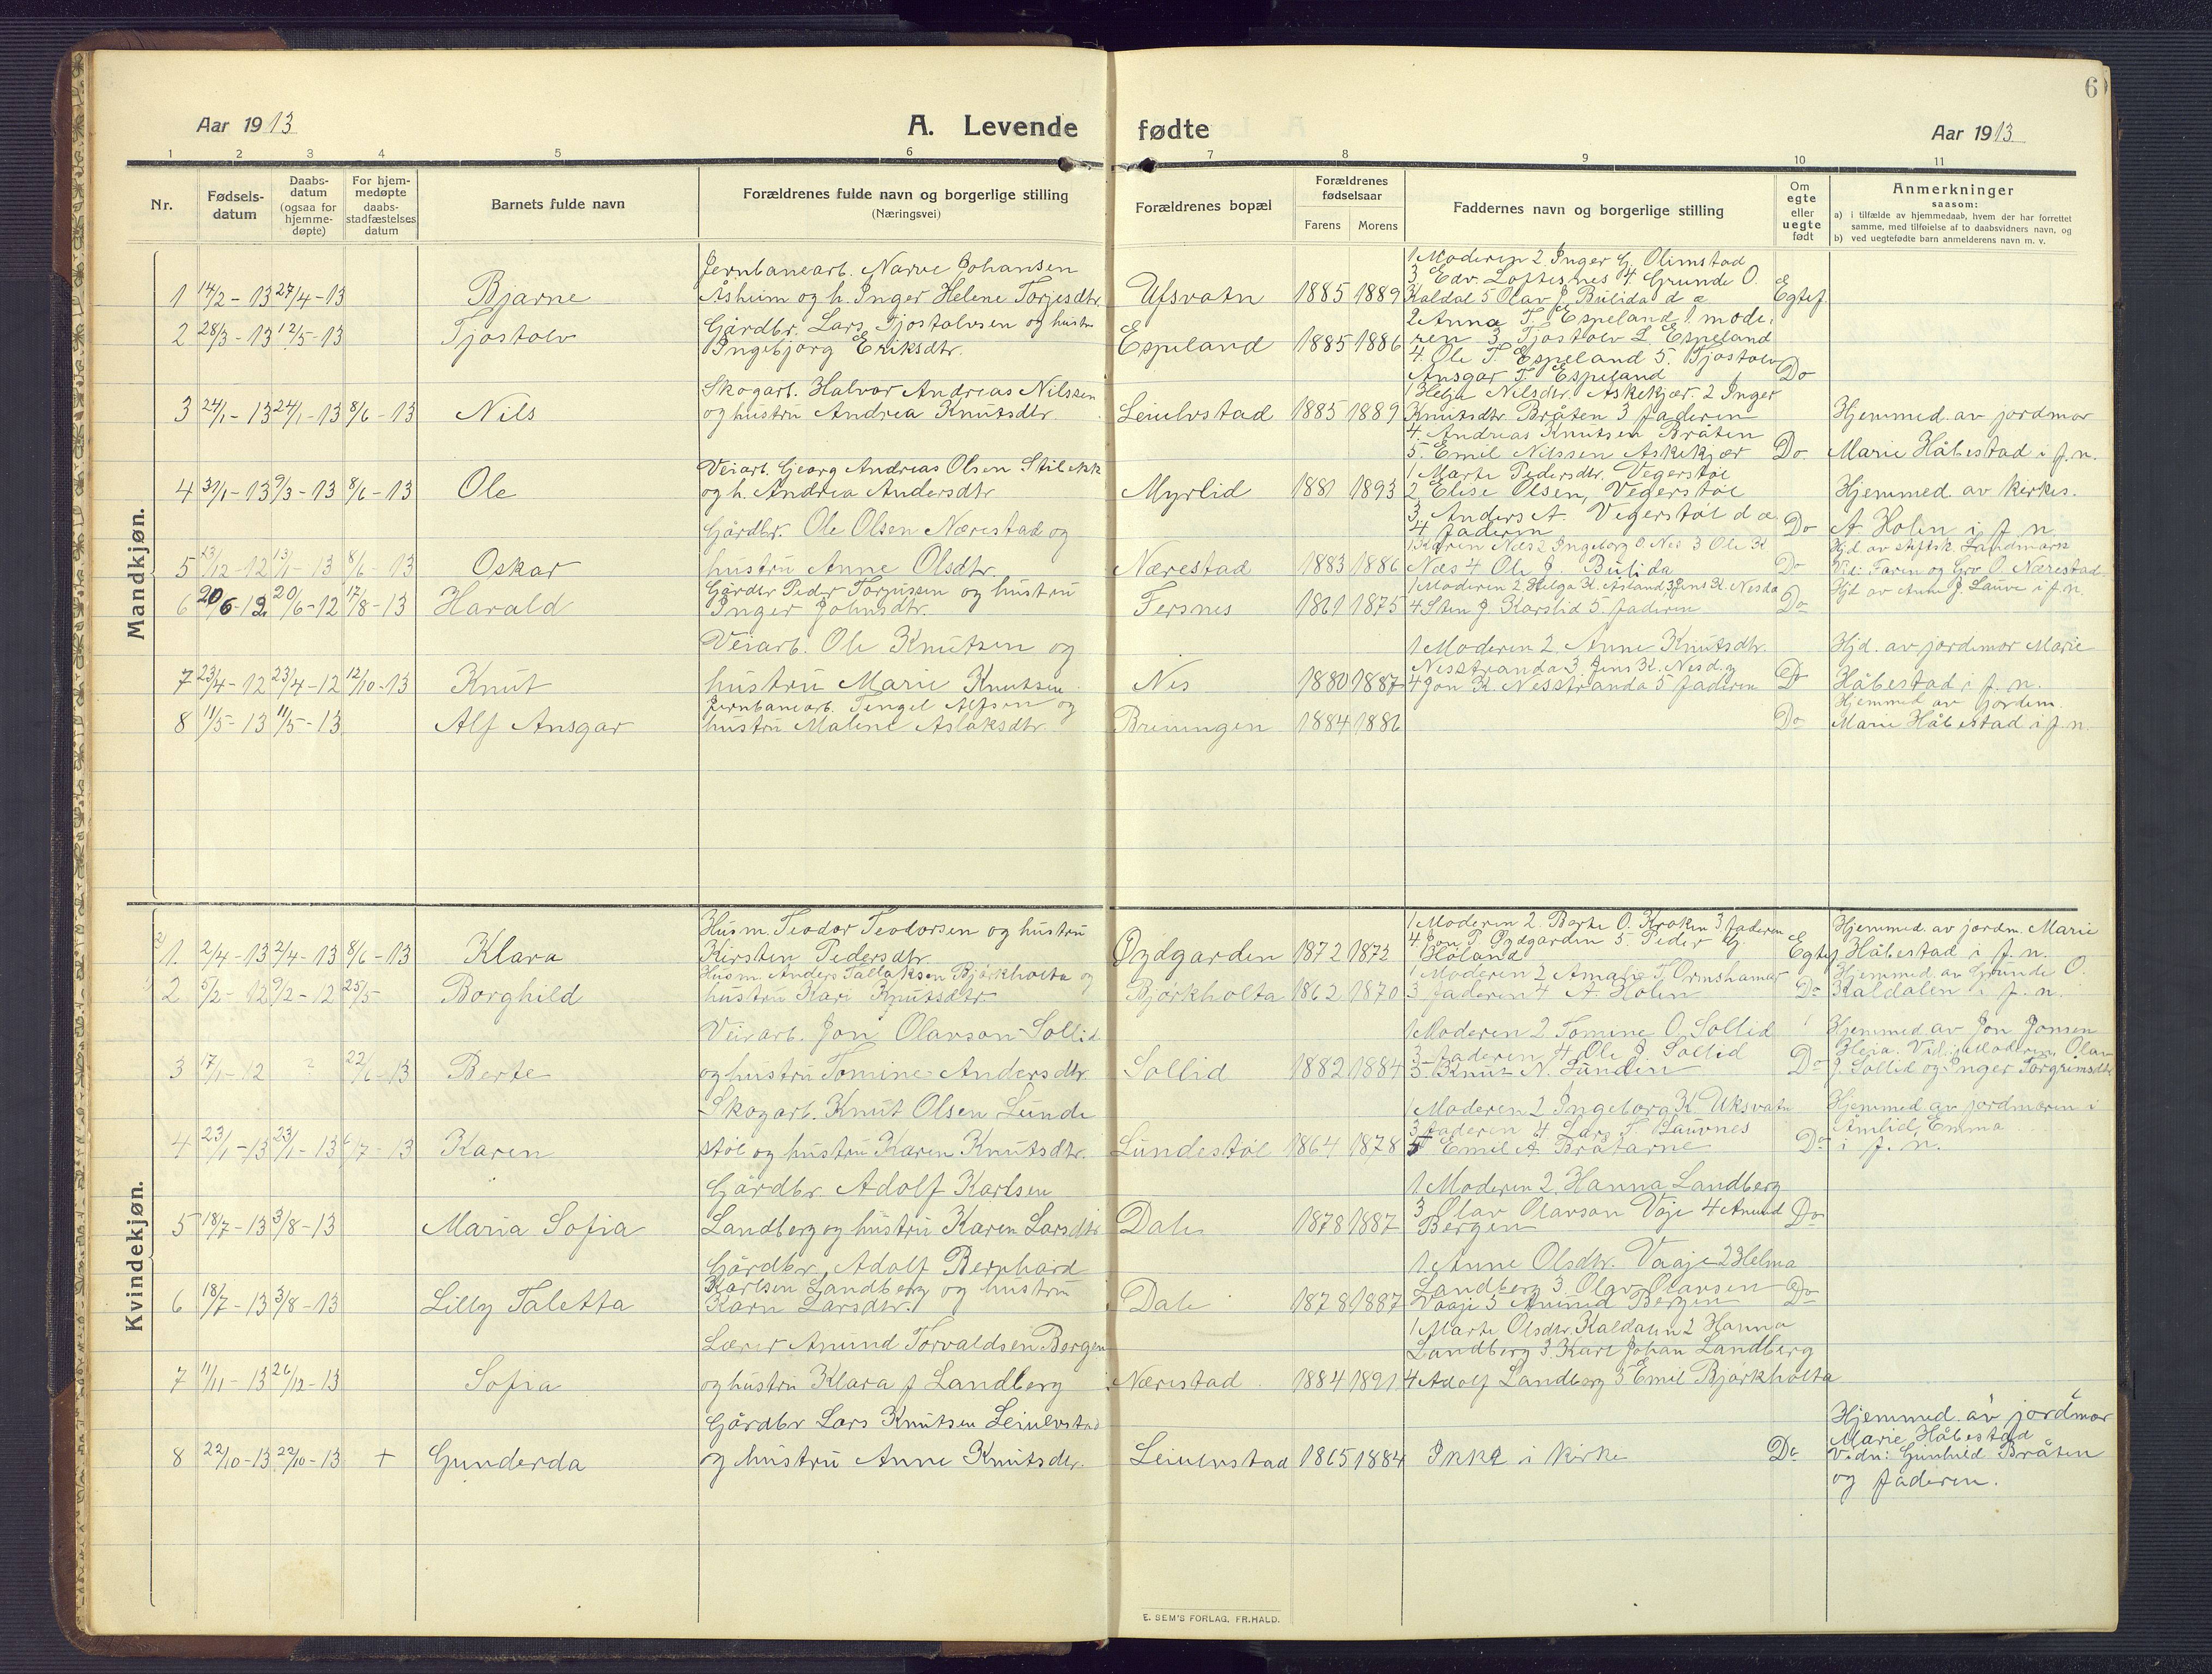 6
Aar 1913
A. Levende fødte
Aar 1913
1 2 3 4 5 6 7 8 9 10 11
Nr.
Fødsels-
datum
Daabs-
datum
(ogsaa for
hjemme-
døpte)
For hjem-
medøpte
daabs-
stadfæstelses
datum
Barnets fulde navn
Forældrenes fulde navn og borgerlige stilling
(Næringsvei)
Forældrenes bopæl
Forældrenes
fødselsaar
Farens Morens
Faddernes navn og borgerlige stilling
Om
egte
eller
uegte
født
Anmerkninger
saasom:
a) i tilfælde av hjemmedaab, hvem der har forrettet
samme, med tilføielse af to daabsvidners navn, og
b) ved uegtefødte barn anmelderens navn m. v.
Mandkjøn.
1 14/2-13 27/4-13 Bjarne
Jernbanearb. Narve Johansen
Åsheim og h. Inger Helene Torjesdtr.
Ufsvatn 1885 1889
1 Moderen 2 Inger G. Olimstad
3 Edv. Loftesnes 4 Grunde O.
Kaldal 5 Olav J. Bulida d æ
Egtef.
2 28/3-13 12/5-13 Tjostolv
Gårdbr. Lars Tjostolvsen og hustru
Ingebjorg Eriksdtr.
Espeland 1885 1886
2 Anna T. Espeland 1 mode-
ren 3 Tjostolv L. Espeland
4. Ole T. Espeland 5. Tjostolv
Ansgar T. Espeland
Do
3 24/1-13 24/1-13 8/6-13 Nils
Skogarb. Halvor Andreas Nilssen
og hustru Andrea Knutsdtr.
Leiulvstad 1885 1889
1 Helga Nilsdtr. Askekjær. 2 Inger
Knutsdtr. Bråten 3 faderen
4. Andreas Knutsen Bråten
5. Emil Nilssen Askekjær
Do
Hjemmed. av jordmor
Marie Håbestad i f. n.
4 31/1-13 9/3-13 8/6-13 Ole
Veiarb. Georg Andreas Olsen
og h. Andrea Andersdtr
Myrlid 1881 1893
1 Marte Pedersdtr. Vegerstøl
2 Elise Olsen, Vegerstøl
3 Anders A. Vegerstøl d æ
4 faderen
Do
Hjemmed. av kirkes.
A Holen i f. n.
5 13/12-12 13/1-13 8/6-13 Oskar
Gårdbr. Ole Olsen Nærestad og
hustru Anne Olsdtr.
Nærestad 1883 1886
1 Karen Næs 2 Ingeborg O. Nes 3 Ole K
Næs 4 Ole J. Bulida
Do
Hjd. av skiftsk. Landmark
Vid: Faren og Gro O. Nærestad
6 20/6-12 20/6-12 17/8-13 Harald
Gårdbr Peder Torjussen og hustru
Inger Johnsdtr.
Fersnes 1861 1875
1 Moderen 2 Helga K. Åsland 3 Jens K. Nesda
4 Sten J. Karslid 5. faderen
Do
Hjd av Anne J. Lauve i f. n.
7 23/4-12 23/4-12 12/10-13 Knut
Veiarb. Ole Knutsen og
hustru Marie Knutsen
Nes 1880 1887
1 Moderen 2. Anne Knutsdtr.
Nesstranda 3 Jens K. Nesd. g
4 Jon K. Nesstranda 5 faderen
Do
Hjd. av jordmor Marie
Håbestad i f. n.
8 11/5-13 11/5-13 Alf Ansgar
Jernbanearb. Tengel Alfsen og
hustru Malene Aslaksdtr.
Breiungen 1884 1886
Do
Hjemmed av jordem.
Marie Håbestad i f. n.
Kvindekjøn.
1. 2/4-13 2/4-13 8/6-13 Klara
Husm. Teodor Teodorsen og hustru
Kirsten Pedersdtr.
Øydgarden 1872 1873
1 Moderen 2. Berte O. Kroken 3. faderen
4. Jon P. Øydgarden 5. Peder G.
Høland
Egtef
Hjemmed. av jordm. Marie
Håbestad i f. n.
2 5/2-12 9/2-12 25/5- Borghild
Husm. Anders Tallaksen Bjørkholta og
hustru Kari Knutsdtr.
Bjørkholta 1862 1870
1 Moderen 2 Amalie T. Ormshamar
3 faderen 4 A. Holen
Do
Hjemmed. av Grunde O.
Kaldalen i f. n.
3 17/1-12 ? 22/6-13 Berte
Veiarb. Jon Olavson Sollid
og hustru Tomine Andersdtr.
Sollid 1882 1884
1 Moderen 2 Tomine O. Sollid
3 faderen 4 Ole J. Sollid
5 Knut N. Sanden
Do
Hjemmed av Jon Jonsen
Heia. Vid.: Moderen, Olav
J. Sollid og Inger Torgrimsdtr
4 23/1-13 23/1-13 6/7-13 Karen
Skogarb. Knut Olsen Lunde
støl og hustru Karen Knutsdtr.
Lundestøl 1864 1878
1 Moderen 2 Ingeborg K. Uksvatn
3 faderen 4. Lars T. Lauvnes
5 Emil A Bråtarne
Do
Hjemmed av jordmoren i
Åmlid, Emma
i f. n.
5 18/7-13 3/8-13 Maria Sofia
Gårdbr. Adolf Karlsen
Landberg og hustru Karen Larsdtr
Dale 1878 1887
1 Moderen 2. Hanna Landberg
3 Olav Olavson Vaje 4 Anund
Bergen
Do
6 18/7-13 3/8-13 Lilly Taletta
Gårdbr. Adolf Bernhard
Karlsen Landberg og hustru
Karn Larsdtr.
Dale 1878 1887
1 Anne Olsdtr. Vaaje 2 Helma
Landberg 3 Olav Olavsen
Vaaje 5 Anund Bergen
Do
7 11/11-13 26/12-13 Sofia
Lærer Anund Torvaldsen Bergen
og hustru Klara f Landberg
Nærestad 1884 1891
1 Marte Olsdtr. Kaldalen 2 Hanna
Landberg 3. Karl Johan Landberg
4 Adolf Landberg 5 Emil Bjørkholta
8 22/10-13 22/10-13 + Gunderda
Gårdbr Lars Knutsen Leiulvstad
og hustru Anne Knutsdtr.
Leiulvstad 1865 1884
Ikke i kirke
Do
Hjemmed. av jordmor
Marie Håbestad
Vidn: Gunhild Bråten
og faderen.
E. SEM'S FORLAG, FR.HALD.